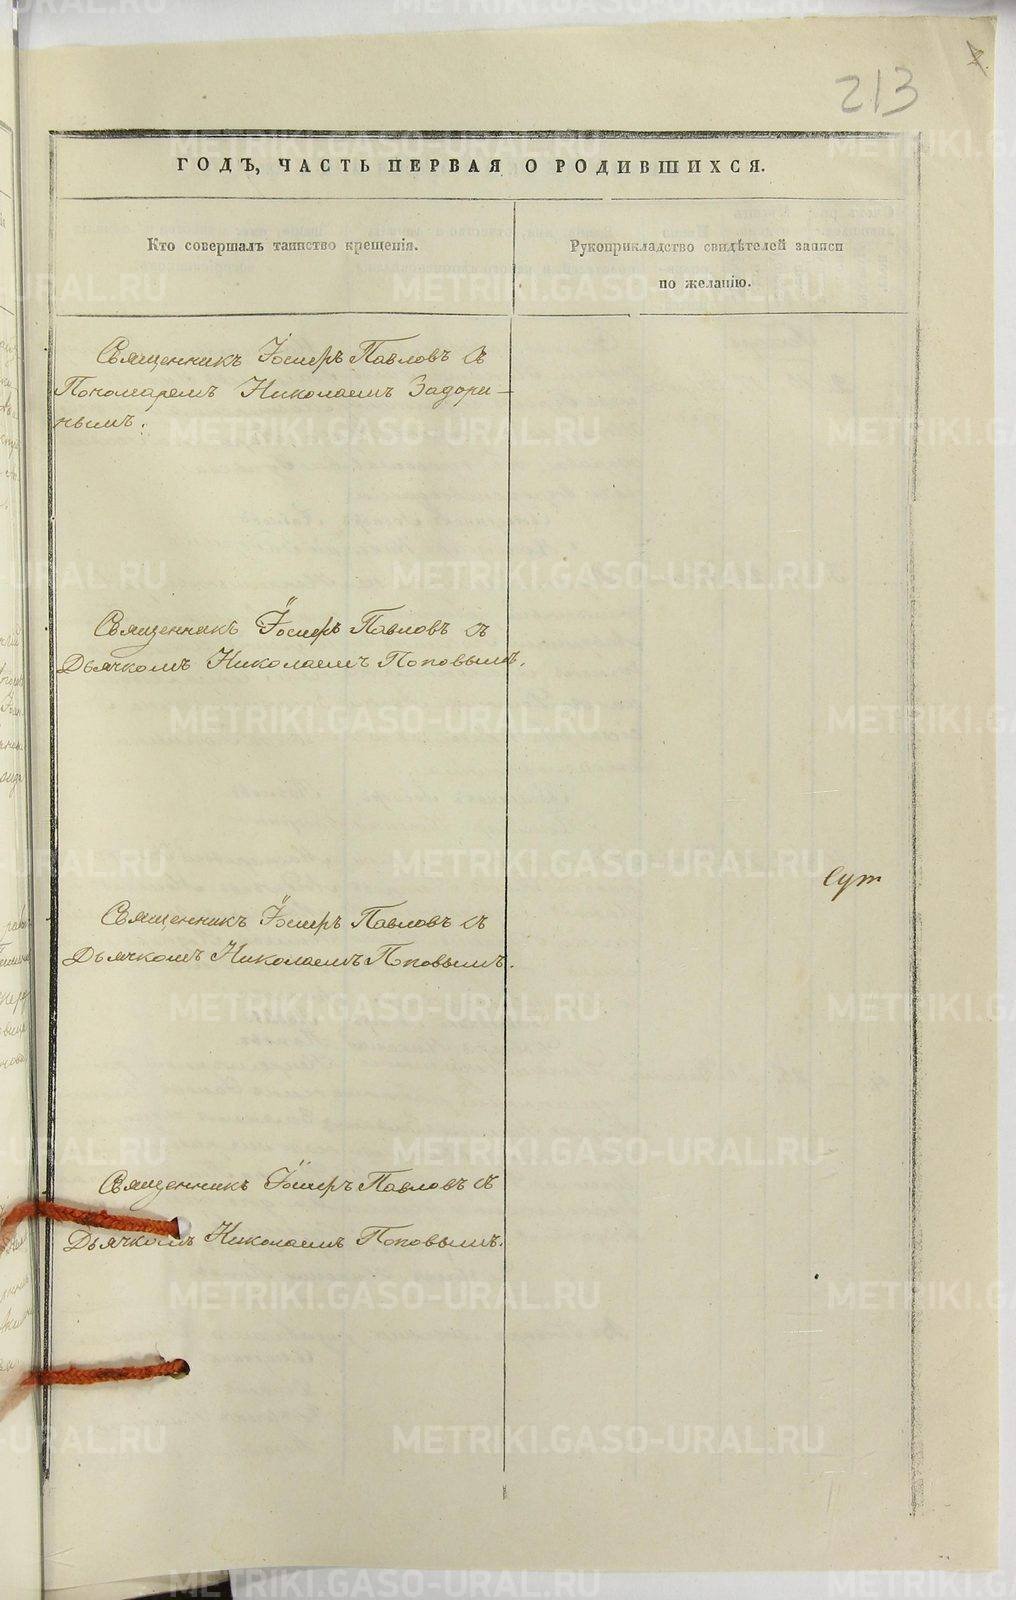 213
ГОДЪ, ЧАСТЬ ПЕРВАЯ О РОДИВШИХСЯ.
Кто совершалъ таинство крещенія.
Рукоприкладство свидѣтелей записи
по желанію.
Священникъ Іосифъ Павловъ съ
Пономаремъ Николаемъ Задори-
нымъ.
Священникъ Іосифъ Павловъ съ
Дьячкомъ Николаемъ Поповымъ.
Священникъ Іосифъ Павловъ съ
Дьячкомъ Николаемъ Поповымъ.
Священникъ Іосифъ Павловъ съ
Дьячкомъ Николаемъ Поповымъ.
METRIKI.GASO-URAL.RU